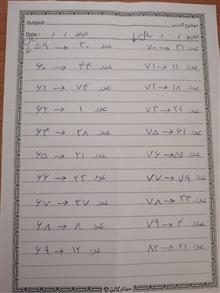 Subject: موضوع الدرس:
Date: / / التاريخ: / /
۵۹ → ۳۰ عدد ۷۰ → ۳۱ عدد
۶۰ → ۴۴ عدد ۷۱ → ۱۱ عدد
۶۱ → ۷۴ عدد ۷۲ → ۱۸ عدد
۶۲ → ۱ عدد ۷۳ → ۲۱ عدد
۶۴ → ۲۸ عدد ۷۵ → ۶۱ عدد
۶۵ → ۲۱ عدد ۷۶ → عدد
۶۶ → ۲۳ عدد ۷۷ → ۷۹ عدد
۶۷ → ۳۷ عدد ۷۸ → ۳۳ عدد
۶۸ → ۸ عدد ۷۹ → ۴ عدد
۶۹ → ۱۲ عدد ۸۲ → ۲۱ عدد